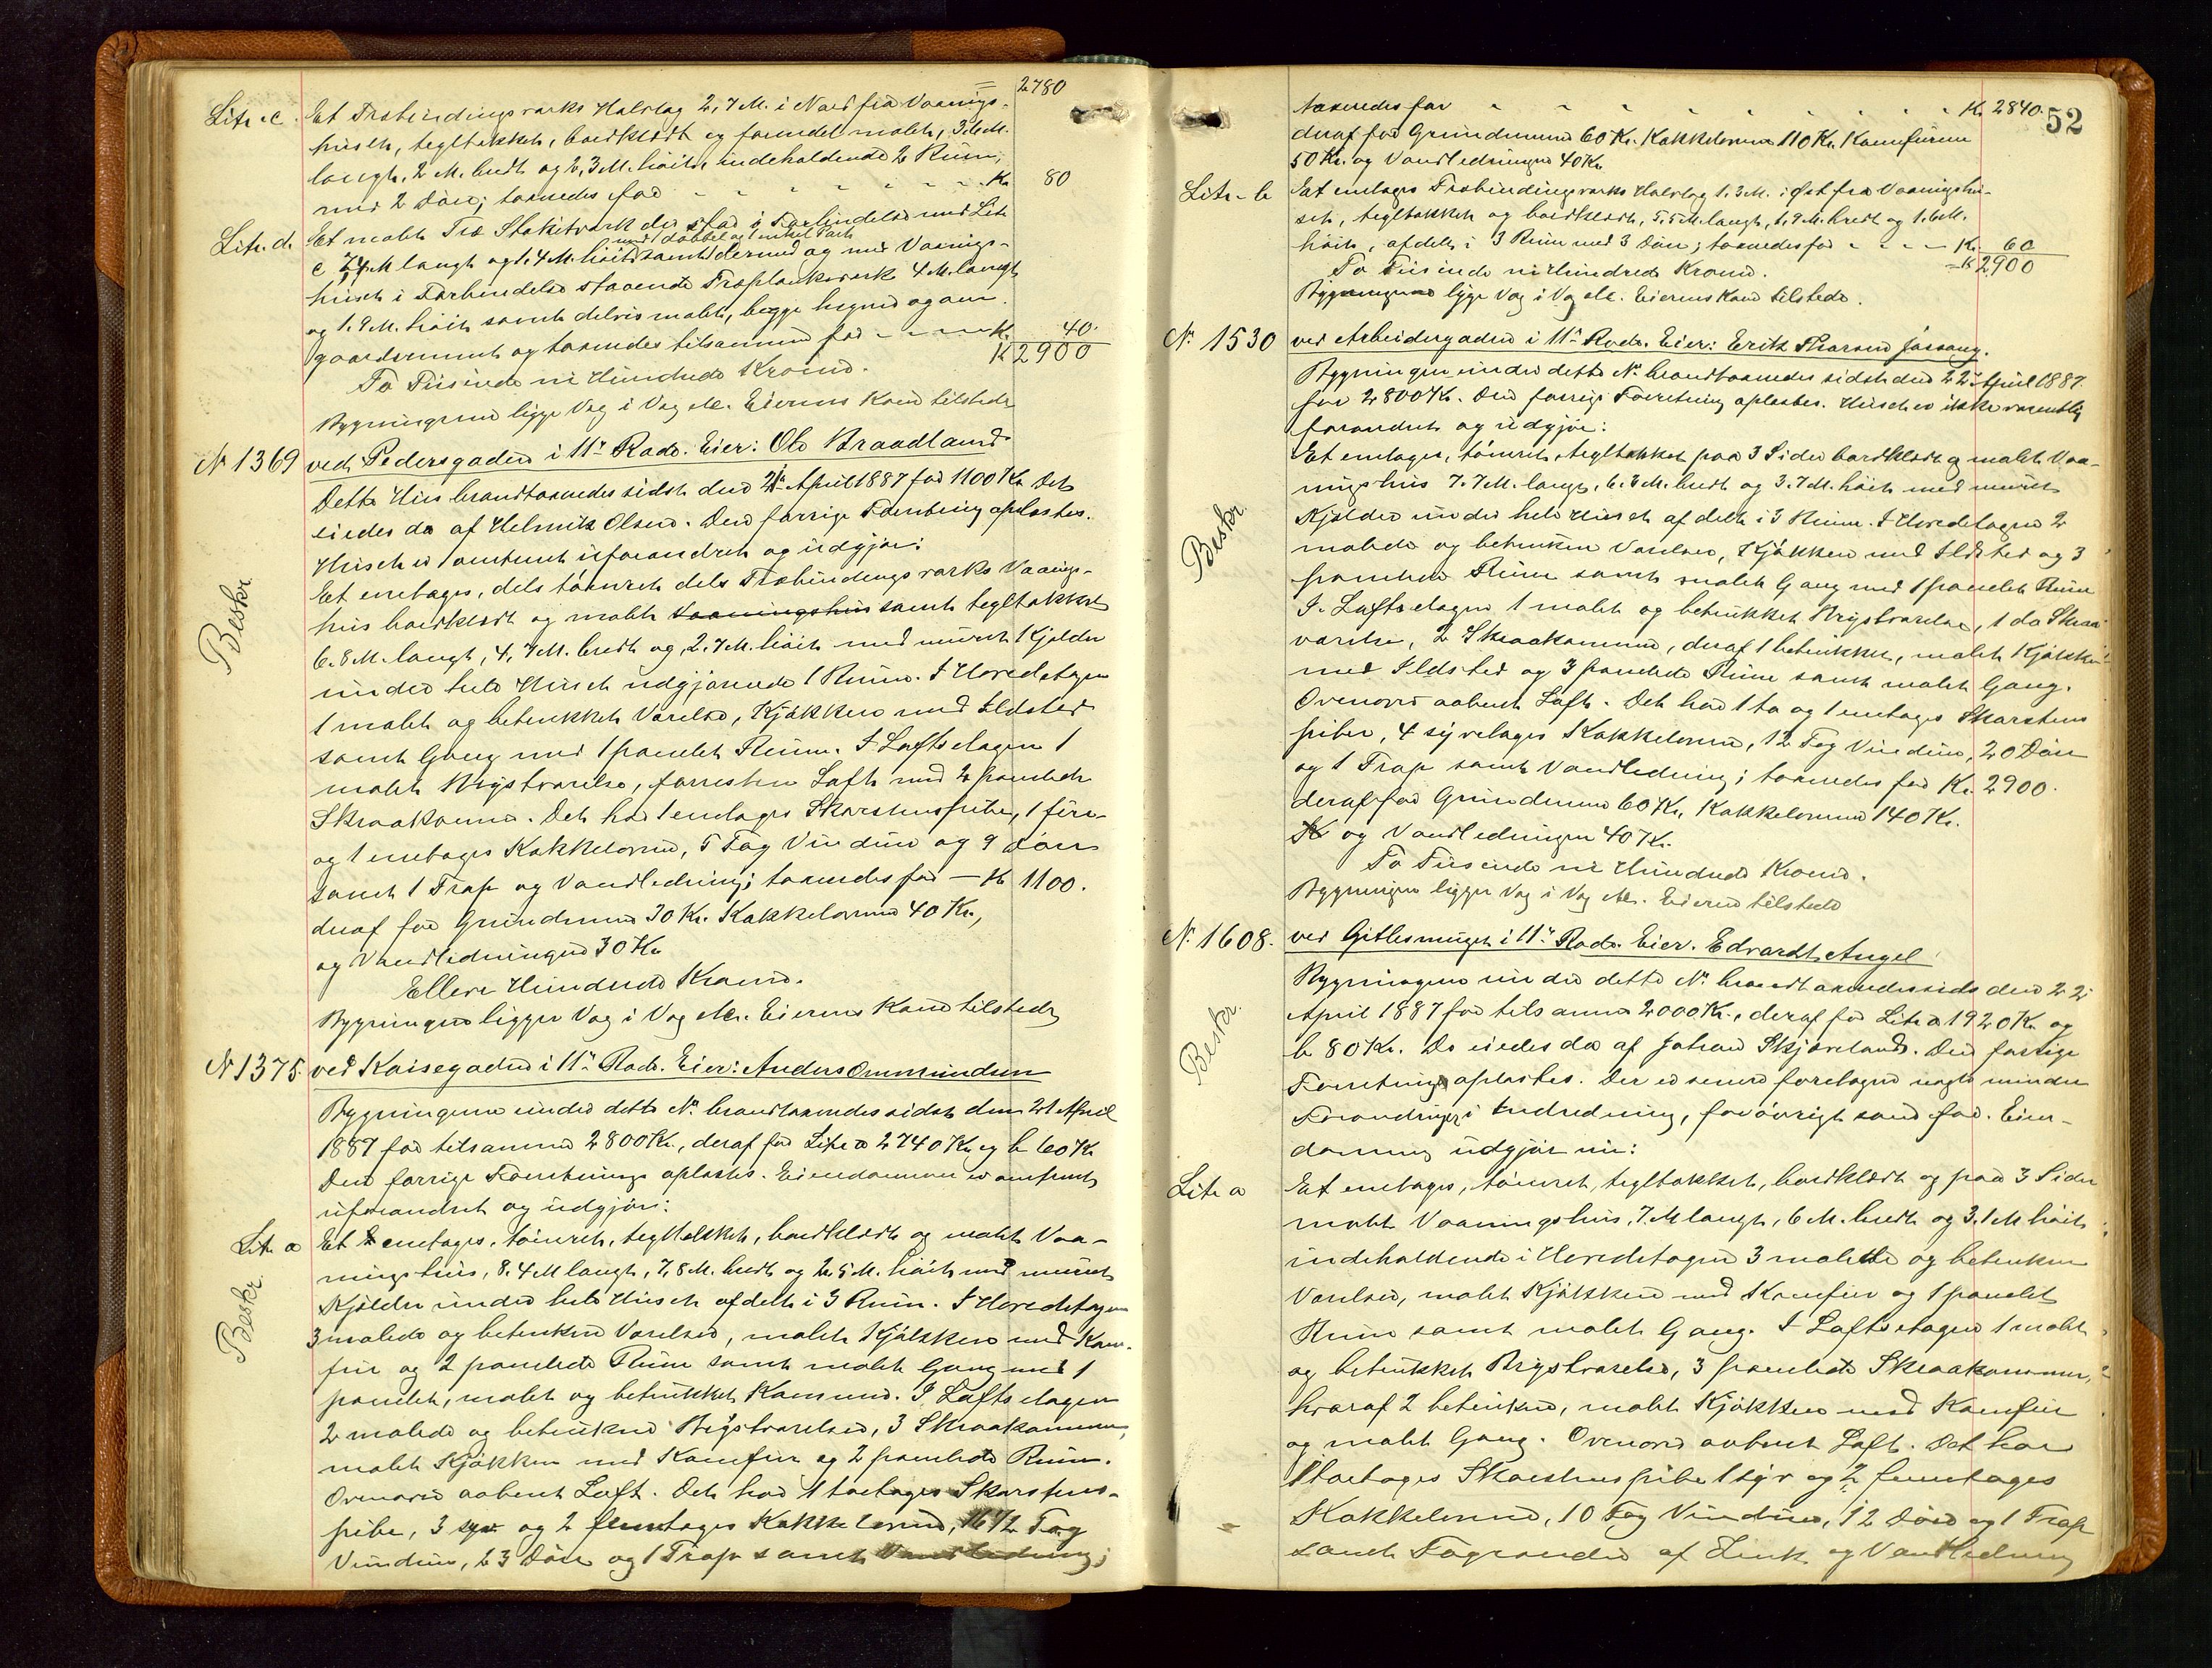 = 2780
Litr. c. Et Træbindingsværks Halvtag 2,7 M. i Nord fra Vaanings-
huset, tegltækket, bordklædt og forendel malet, 3.6 M.
langt, 2 M. bredt og 2,3 M. høit, indeholdende 2 Rum,
med 2 Døre; taxeredes for - - - - - - - Kr. 80
Litr. d. Et malet Træ Stakitværk der staa i Forbindelse med Litr
med 1 dobbel og 1 enkel Port
c 7,4 M langt og 1.4 M. høit samt dermed og med Vaanings-
huset i Forbindelse staaende Træplankeværk 4 M. langt
og 1.9 M. høit samt delvis malet, begge hegner og om
gaardsrummet og taxeredes tilsammen for - - - - Kr. 40.
K 2900
To Tusinde ni Hundrede Kroner.
Bygningerne ligge Vag i Vag etc. Eierens Kone tilstede
No 1369 ved Pedersgaden i 11te Rode. Eier: Ole Braadland.
Dette Hus brandtaxeredes sidst den 21de April 1887 for 1100 Kr. Det
eiedes da af Helmik Olsen. Den forrige Forretning oplæstes.
Huset er omtrent uforandret og udgjør:
Beskr. Et enetages, dels tømret dels Træbindingsværks Vaanings-
hus bordklædt og malet Vaaningshus samt tegltækket
6.8 M. langt, 4,7 M. bredt og 2.7 M. høit med muret Kjelder
under hele Huset udgjørende 1 Rum. I Hovedetagen
1 malet og betrukket Værelse, Kjøkken med Ildsted
samt Gang med 1 panelet Rum. I Loftsetagen 1
malet Kvistværelse, forresten Loft med 2 panelede
Skraakamre. Det har 1 enetages Skorstenspibe, 1 fire-
og 1 enetages Kakkelovne, 5 Fag Vinduer og 9 Døre
samt 1 Trap og Vandledning; taxeredes for — Kr 1100.
deraf for Grundmure 30 Kr. Kakkelovne 40 Kr.,
og Vandledningen 30 Kr
Elleve Hundrede Kroner.
Bygningen ligger Vag i Vag etc. Eierens Kone tilstede
No 1375 ved Kaisegaden i 11te Rode. Eier: Anders Ommundsen
Bygningerne under dette No. brandtaxeredes sidst den 21 April
1887 for tilsammen 2800 Kr., deraf for Litr a 2740 Kr. og b 60 Kr
Den forrige Forretning oplæstes. Eiendommen er omtrent
uforandret og udgjør:
Litr. a Et enetages, tømret, tegltækket, bordklædt og malet Vaa-
Beskr. ningshus, 8.4 M langt, 7,8 M. bredt og 2.5 M. høit med muret
Kjelder under hele Huset afdelt i 3 Rum. I Hovedetagen
3 malede og betrukne Værelser, malet Kjøkken med Kom-
fur og 2 panelede Rum samt malet Gang med 1
panelet, malet og betrukket Kammer. I Loftsetagen
2 malede og betrukne Kvistværelser, 3 Skraakammer,
malet Kjøkken med Komfur og 2 panelede Rum.
Ovenover aabent Loft. Det har 1 toetages Skorstens-
pibe, 3 syv og 2 femetages Kakkelovne, 16 1/2 Fag
Vinduer, 23 Døre og 1 Trap samt Vandledning;
52
Taxeredes for - - - - - - - - - - Kr. 2840.
deraf for Grundmuren 60 Kr. Kakkelovne 110 Kr. Komfurene
50 Kr. og Vandledningen 40 Kr
Litr. b Et enetages Træbindingsværks Halvtag 1.3 M. i Øst fra Vaaningshu-
set, tegltækket og bordklædt, 5.5 M. langt, 1.9 M. bredt og 1.6 M.
høit, afdelt i 3 Rum med 3 Døre; taxeredes for - - - Kr. 60
K 2900
To Tusinde ni Hundrede Kroner.
Bygningerne ligge Vag i Vag etc. Eierens Kone tilstede.
No. 1530 ved Arbeidergaden i 11te Rode. Eier: Erik Thorsen Jøssang.
Bygningen under dette No. brandtaxeredes sidst den 22de April 1887
for 2800 Kr. Den forrige Forretning oplæstes. Huset er ikke væsentlig
forandret og udgjør:
Et enetages, tømret, tegltækket paa 3 Sider bordklædt og malet Vaa-
Beskr. ningshus 7.7 M. langt, 6.3 M. bredt og 3.7 M. høit med muret
Kjelder under hele Huset afdelt i 3 Rum. I Hovedetagen 2
malede og betrukne Værelser, Kjøkken med Ildsted og 3
panelede Rum samt malet Gang med 1 panelet Rum
I Loftsetagen 1 malet og betrukket Kvistværelse, 1 do Skraa-
værelse, 2 Skraakammer, deraf 1 betrukket, malet Kjøkken
med Ildsted og 3 panelede Rum samt malet Gang.
Ovenover aabent Loft. Det har 1 to og 1 enetages Skorstens
piber, 4 syvetages Kakkelovne, 12 Fag Vinduer, 20 Døre
og 1 Trap samt Vandledning; taxeredes for Kr. 2900.
deraf for Grundmure 60 Kr., Kakkelovne 140 Kr.
Kr og Vandledningen 40 Kr.
To Tusinde ni Hundrede Kroner.
Bygningen ligger Vag i Vag etc. Eieren tilstede
No. 1608. ved Gitlesmuget i 11te Rode. Eier. Edvardt Angel
Bygningen under dette No. brandtaxeredes sidst den 22de
April 1887 for tilsammen 2000 Kr., deraf for Litr a 1920 Kr. og
Beskr. b 80 Kr. De eiedes da af Johan Skjæveland. Den forrige
Forretning oplæstes. Der er senere foretagne nogle mindre
Forandringer i Indredning, forøvrigt som før. Eien-
dommen udgjør nu:
Litr. a Et enetages, tømret, tegltækket, bordklædt og paa 3 Sider
malet Vaaningshus, 7 M langt, 6 M. bredt og 3.1 M høit
indeholdende i Hovedetagen 3 malede og betrukne
Værelser, malet Kjøkken med Komfur og 1 panelet
Rum samt malet Gang. I Loftsetagen 1 malet
og betrukket Kvistværelse, 3 panelede Skraakammer,
hvoraf 2 betrukne, malet Kjøkken med Komfur
og malet Gang. Ovenover aabent Loft. Det har
1 toetages Skorstenspibe 1 syv og 2 femetages
Kakkelovne, 10 Fag Vinduer, 12 Døre og 1 Trap
samt Tagrender af Zink og Vandledning